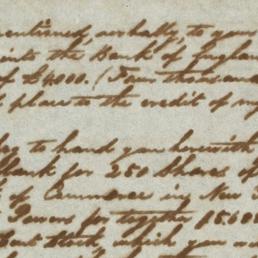 mentioned, verbally, to your
into the Bank of England
of £4000. (Four thousand
place to the credit of my
beg to hand you herewith
Blank for 250 Shares of
of Commerce in New
Powers for together $560
Stock, which you